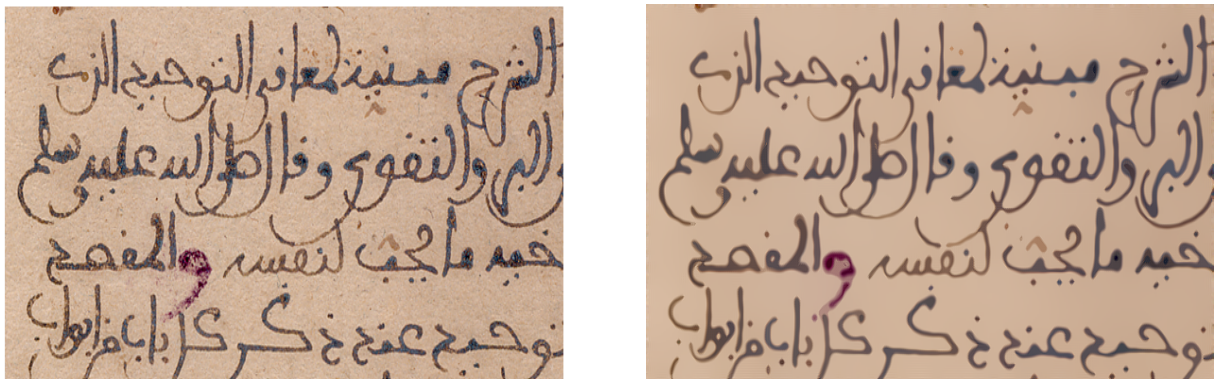 الشرح مبنية لمعاني التوحيد الذي
والبر والتقوى وقال صلى الله عليه وسلم
خيه ما يحب لنفسه و المفصح
توحيد عند ذكر كل باب من ابواب
الشرح مبنية لمعاني التوحيد الذي
والبر والتقوى وقال صلى الله عليه وسلم
خيه ما يحب لنفسه و المفصح
توحيد عند ذكر كل باب من ابواب